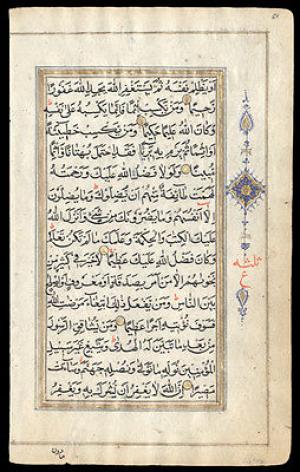 او يظلم نفسه ثم يستغفر الله يجد الله غفورا
رحيما ومن يكسب اثما فانما يكسبه على نفسه
وكان الله عليما حكيما ومن يكسب خطيئة
او اثما ثم يرم به بريئا فقد احتمل بهتانا واثما
مبينا ولولا فضل الله عليك ورحمته
لهمت طائفة منهم ان يضلوك وما يضلون
الا انفسهم وما يضرونك من شيء وانزل الله
عليك الكتب والحكمة وعلمك ما لم تكن تعلم
وكان فضل الله عليك عظيما لا خير في كثير من
نجوىهم الا من امر بصدقة او معروف او اصلاح
بين الناس ومن يفعل ذلك ابتغاء مرضات الله
فسوف نؤتيه اجرا عظيما ومن يشاقق الرسول
من بعد ما تبين له الهدى ويتبع غير سبيل
المؤمنين نوله ما تولى ونصله جهنم وساءت
مصيرا ان الله لا يغفر ان يشرك به ويغفر
ثلثه
ع
ما دون